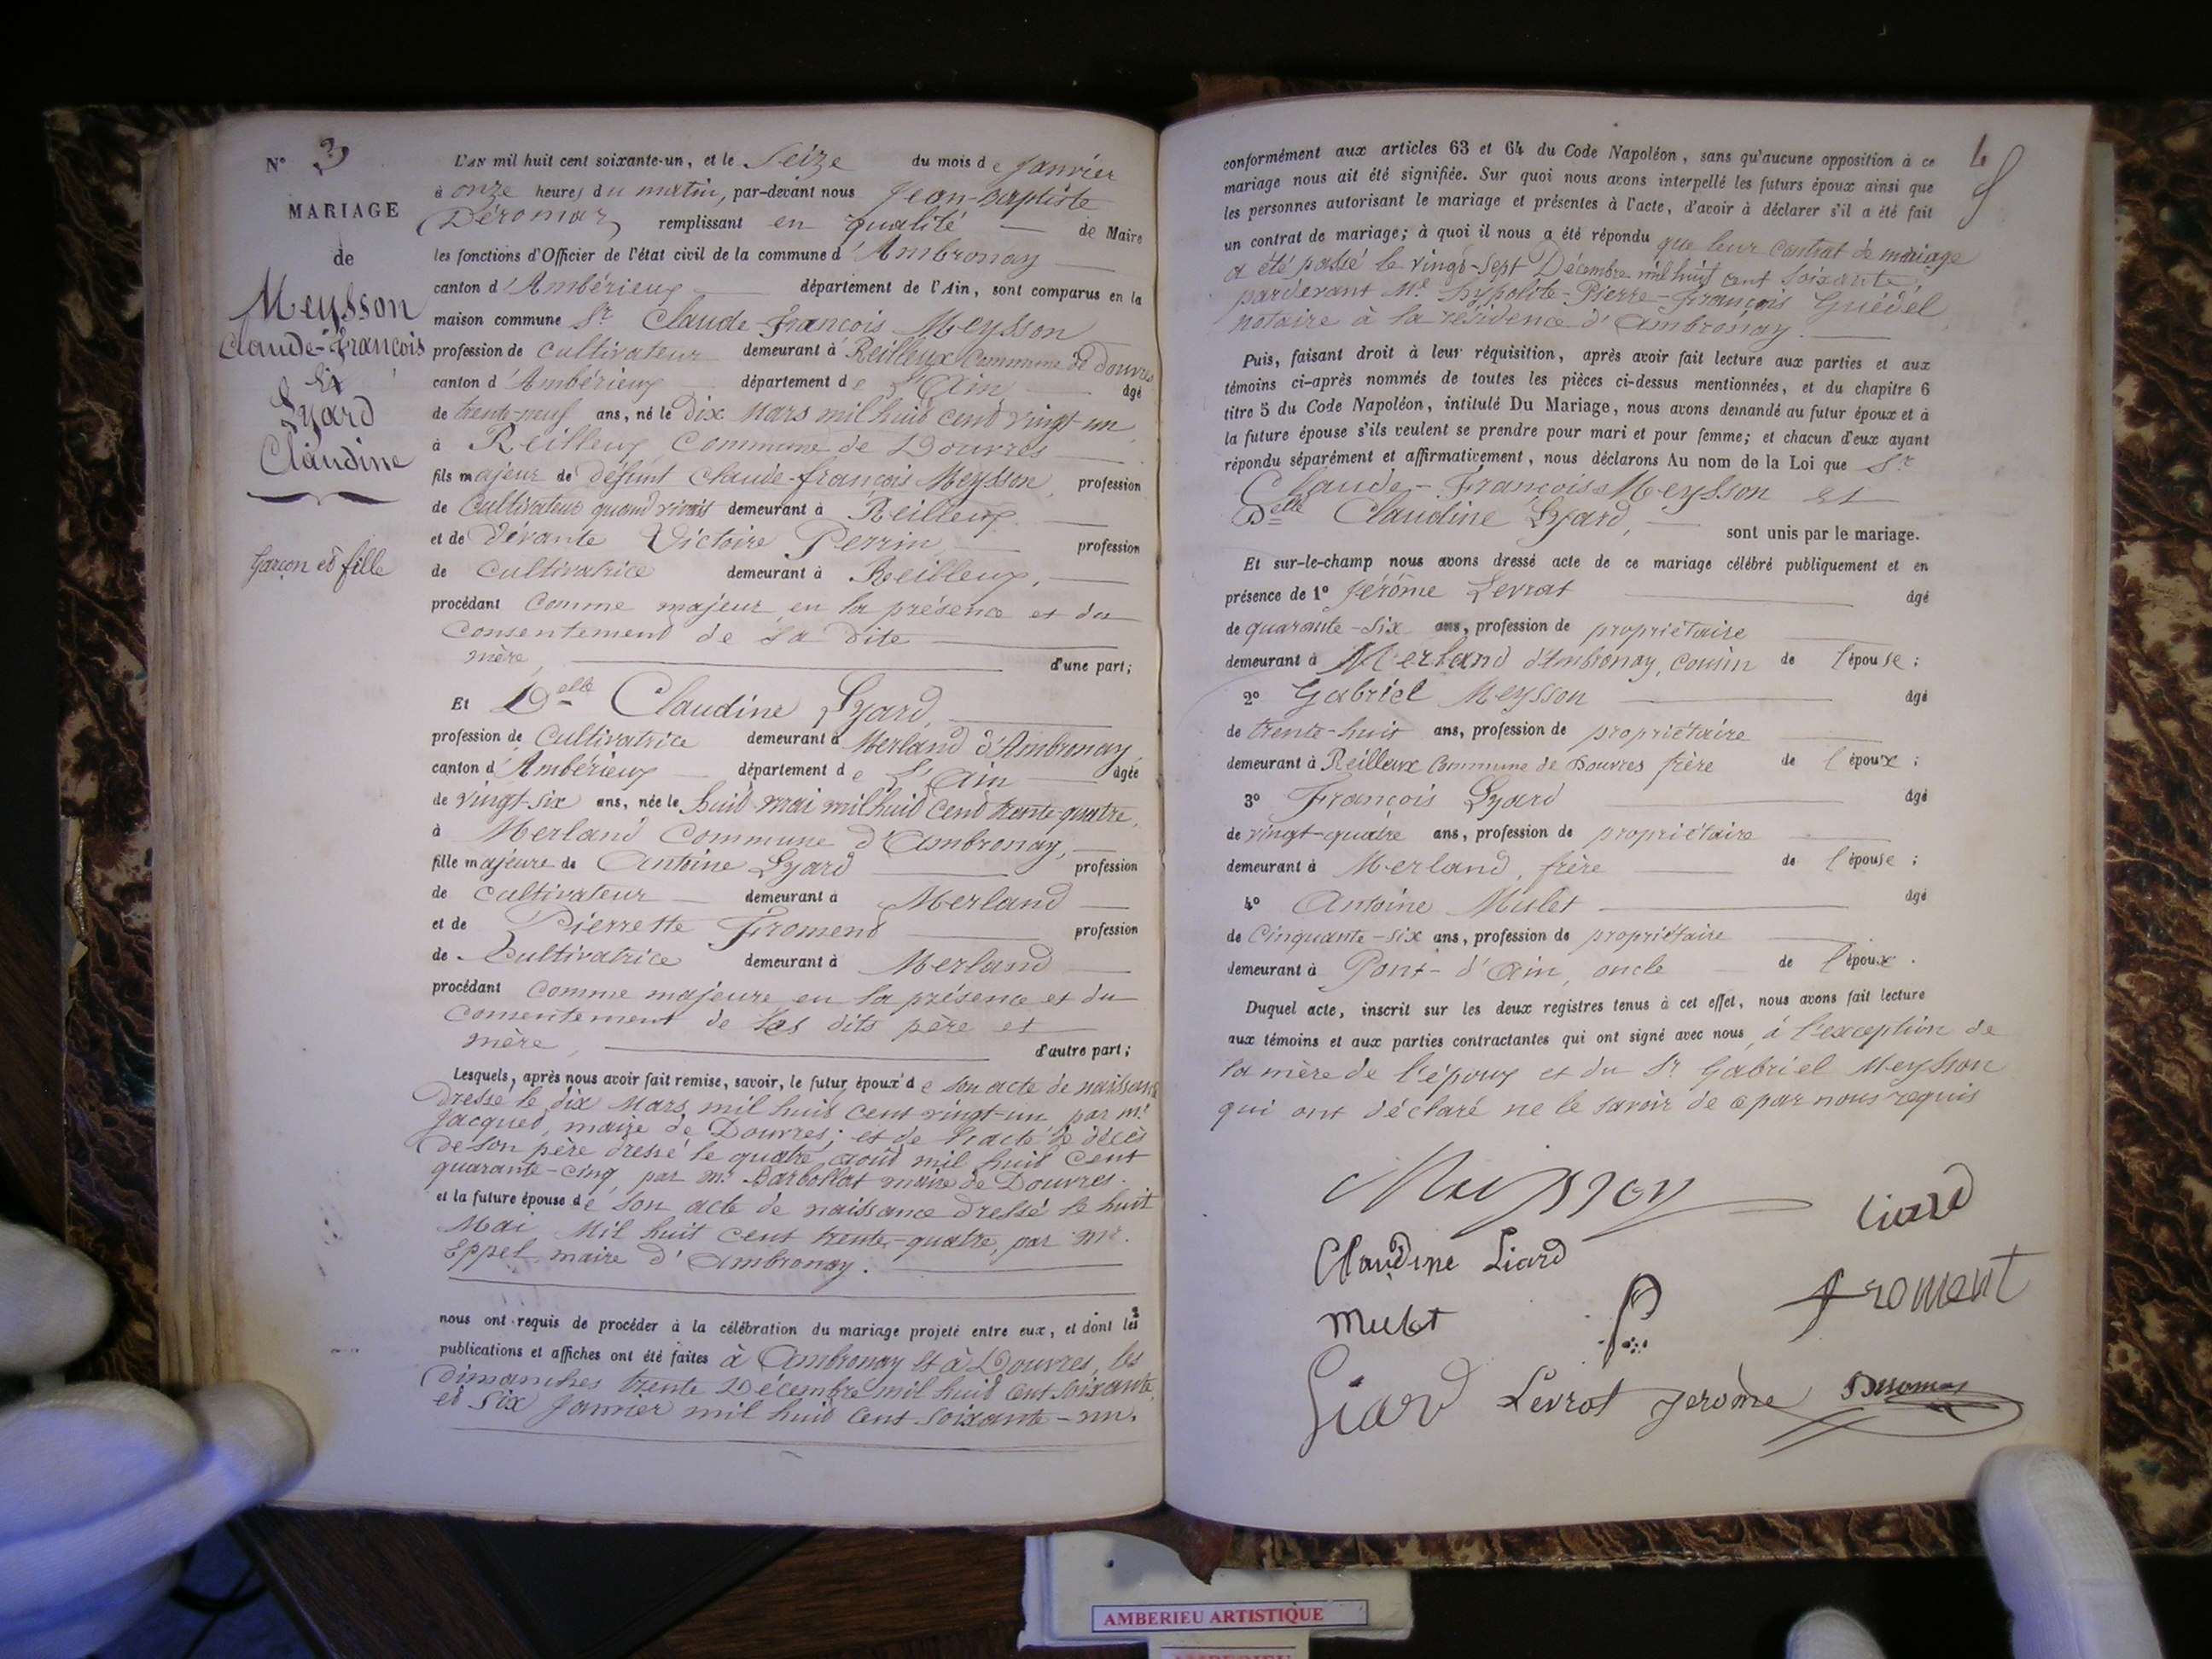 N° 3
MARIAGE
de
Meysson
Claude-François
Et
Lyard
Claudine
Garçon et fille
L'AN mil huit cent soixante-un, et le Seize du mois de Janvier
à onze heures du matin, par-devant nous Jean-Baptiste
Déromas remplissant en qualité de Maire
les fonctions d'Officier de l'état civil de la commune d'Ambronay
canton d'Ambérieux département de l'Ain, sont comparus en la
maison commune Sr Claude-François Meysson
profession de Cultivateur demeurant à Reilleux Commune de Douvres
canton d'Ambérieux département de l'Ain âgé
de trente-neuf ans, né le dix Mars mil huit cent vingt-un
à Reilleux Commune de Douvres
fils majeur de défunt Claude-françois Meysson, profession
de Cultivateur quand vivait demeurant à Reilleux
et de vivante Victoire Perrin profession
de Cultivatrice demeurant à Reilleux,
procédant Comme majeur en la présence et du
Consentement de sa dite
mère, d'une part;
Et Delle Claudine Lyard,
profession de Cultivatrice demeurant à Merland d'Ambronay
canton d'Ambérieux département de L'Ain âgée
de vingt-six ans, née le huit mai mil huit cent trente-quatre,
à Merland Commune d'Ambronay,
fille majeure de Antoine Lyard profession
de Cultivateur demeurant à Merland
et de Pierrette Froment profession
de Cultivatrice demeurant à Merland
procédant Comme majeure en la présence et du
Consentement de ses dits père et
mère, d'autre part;
Lesquels, après nous avoir fait remise, savoir, le futur époux de son acte de naissance
dressé le dix Mars mil huit cent vingt-un par mr
Jacques, maire de Douvres; et de l'acte de décès
de son père dressé le quatre août mil huit cent
quarante-cinq, par mr maire de Douvres.
et la future épouse de son acte de naissance dressé le huit
Mai Mil huit cent trente-quatre, par mr.
Eppel maire d'Ambronay.
nous ont requis de procéder à la célébration du mariage projeté entre eux, et dont les 2
publications et affiches ont été faites à Ambronay et à Douvres, les
Dimanches trente Décembre mil huit cent soixante,
et six Janvier mil huit cent soixante-un.
4
conformément aux articles 63 et 64 du Code Napoléon, sans qu'aucune opposition à ce
mariage nous ait été signifiée. Sur quoi nous avons interpellé les futurs époux ainsi que
les personnes autorisant le mariage et présentes à l'acte, d'avoir à déclarer s'il a été fait
un contrat de mariage; à quoi il nous a été répondu que leur Contrat de mariage
a été passé le vingt-Sept Décembre mil huit cent soixante,
pardevant Me hypolite-Pierre-François Guédel
notaire à la résidence d'Ambronay.
Puis, faisant droit à leur réquisition, après avoir fait lecture aux parties et aux
témoins ci-après nommés de toutes les pièces ci-dessus mentionnées, et du chapitre 6
titre 5 du Code Napoléon, intitulé Du Mariage, nous avons demandé au futur époux et à
la future épouse s'ils veulent se prendre pour mari et pour femme; et chacun d'eux ayant
répondu séparément et affirmativement, nous déclarons Au nom de la Loi que Sr
Claude-François Meysson et
Delle Claudine Lyard, sont unis par le mariage.
Et sur-le-champ nous avons dressé acte de ce mariage célébré publiquement et en
présence de 1° Jérôme Levrat âgé
de quarante-six ans, profession de propriétaire
demeurant à Merland d'Ambronay, cousin de l'épouse;
2° Gabriel Meysson âgé
de trente-huit ans, profession de propriétaire
demeurant à Reilleux Commune de Douvres frère de l'époux;
3° François Lyard âgé
de vingt-quatre ans, profession de propriétaire
demeurant à Merland, frère de l'épouse;
4° Antoine Mulet âgé
de Cinquante-six ans, profession de propriétaire
demeurant à Pont-d'Ain, oncle de l'époux.
Duquel acte, inscrit sur les deux registres tenus à cet effet, nous avons fait lecture
aux témoins et aux parties contractantes qui ont signé avec nous, à l'exception de
la mère de l'époux et du Sr Gabriel Meysson
qui ont déclaré ne le savoir de ce par nous requis
Liard
Claudine Liard
froment
Mulet
Liard Levrat Jerôme Deromas
AMBERIEU ARTISTIQUE
AMBERIEU